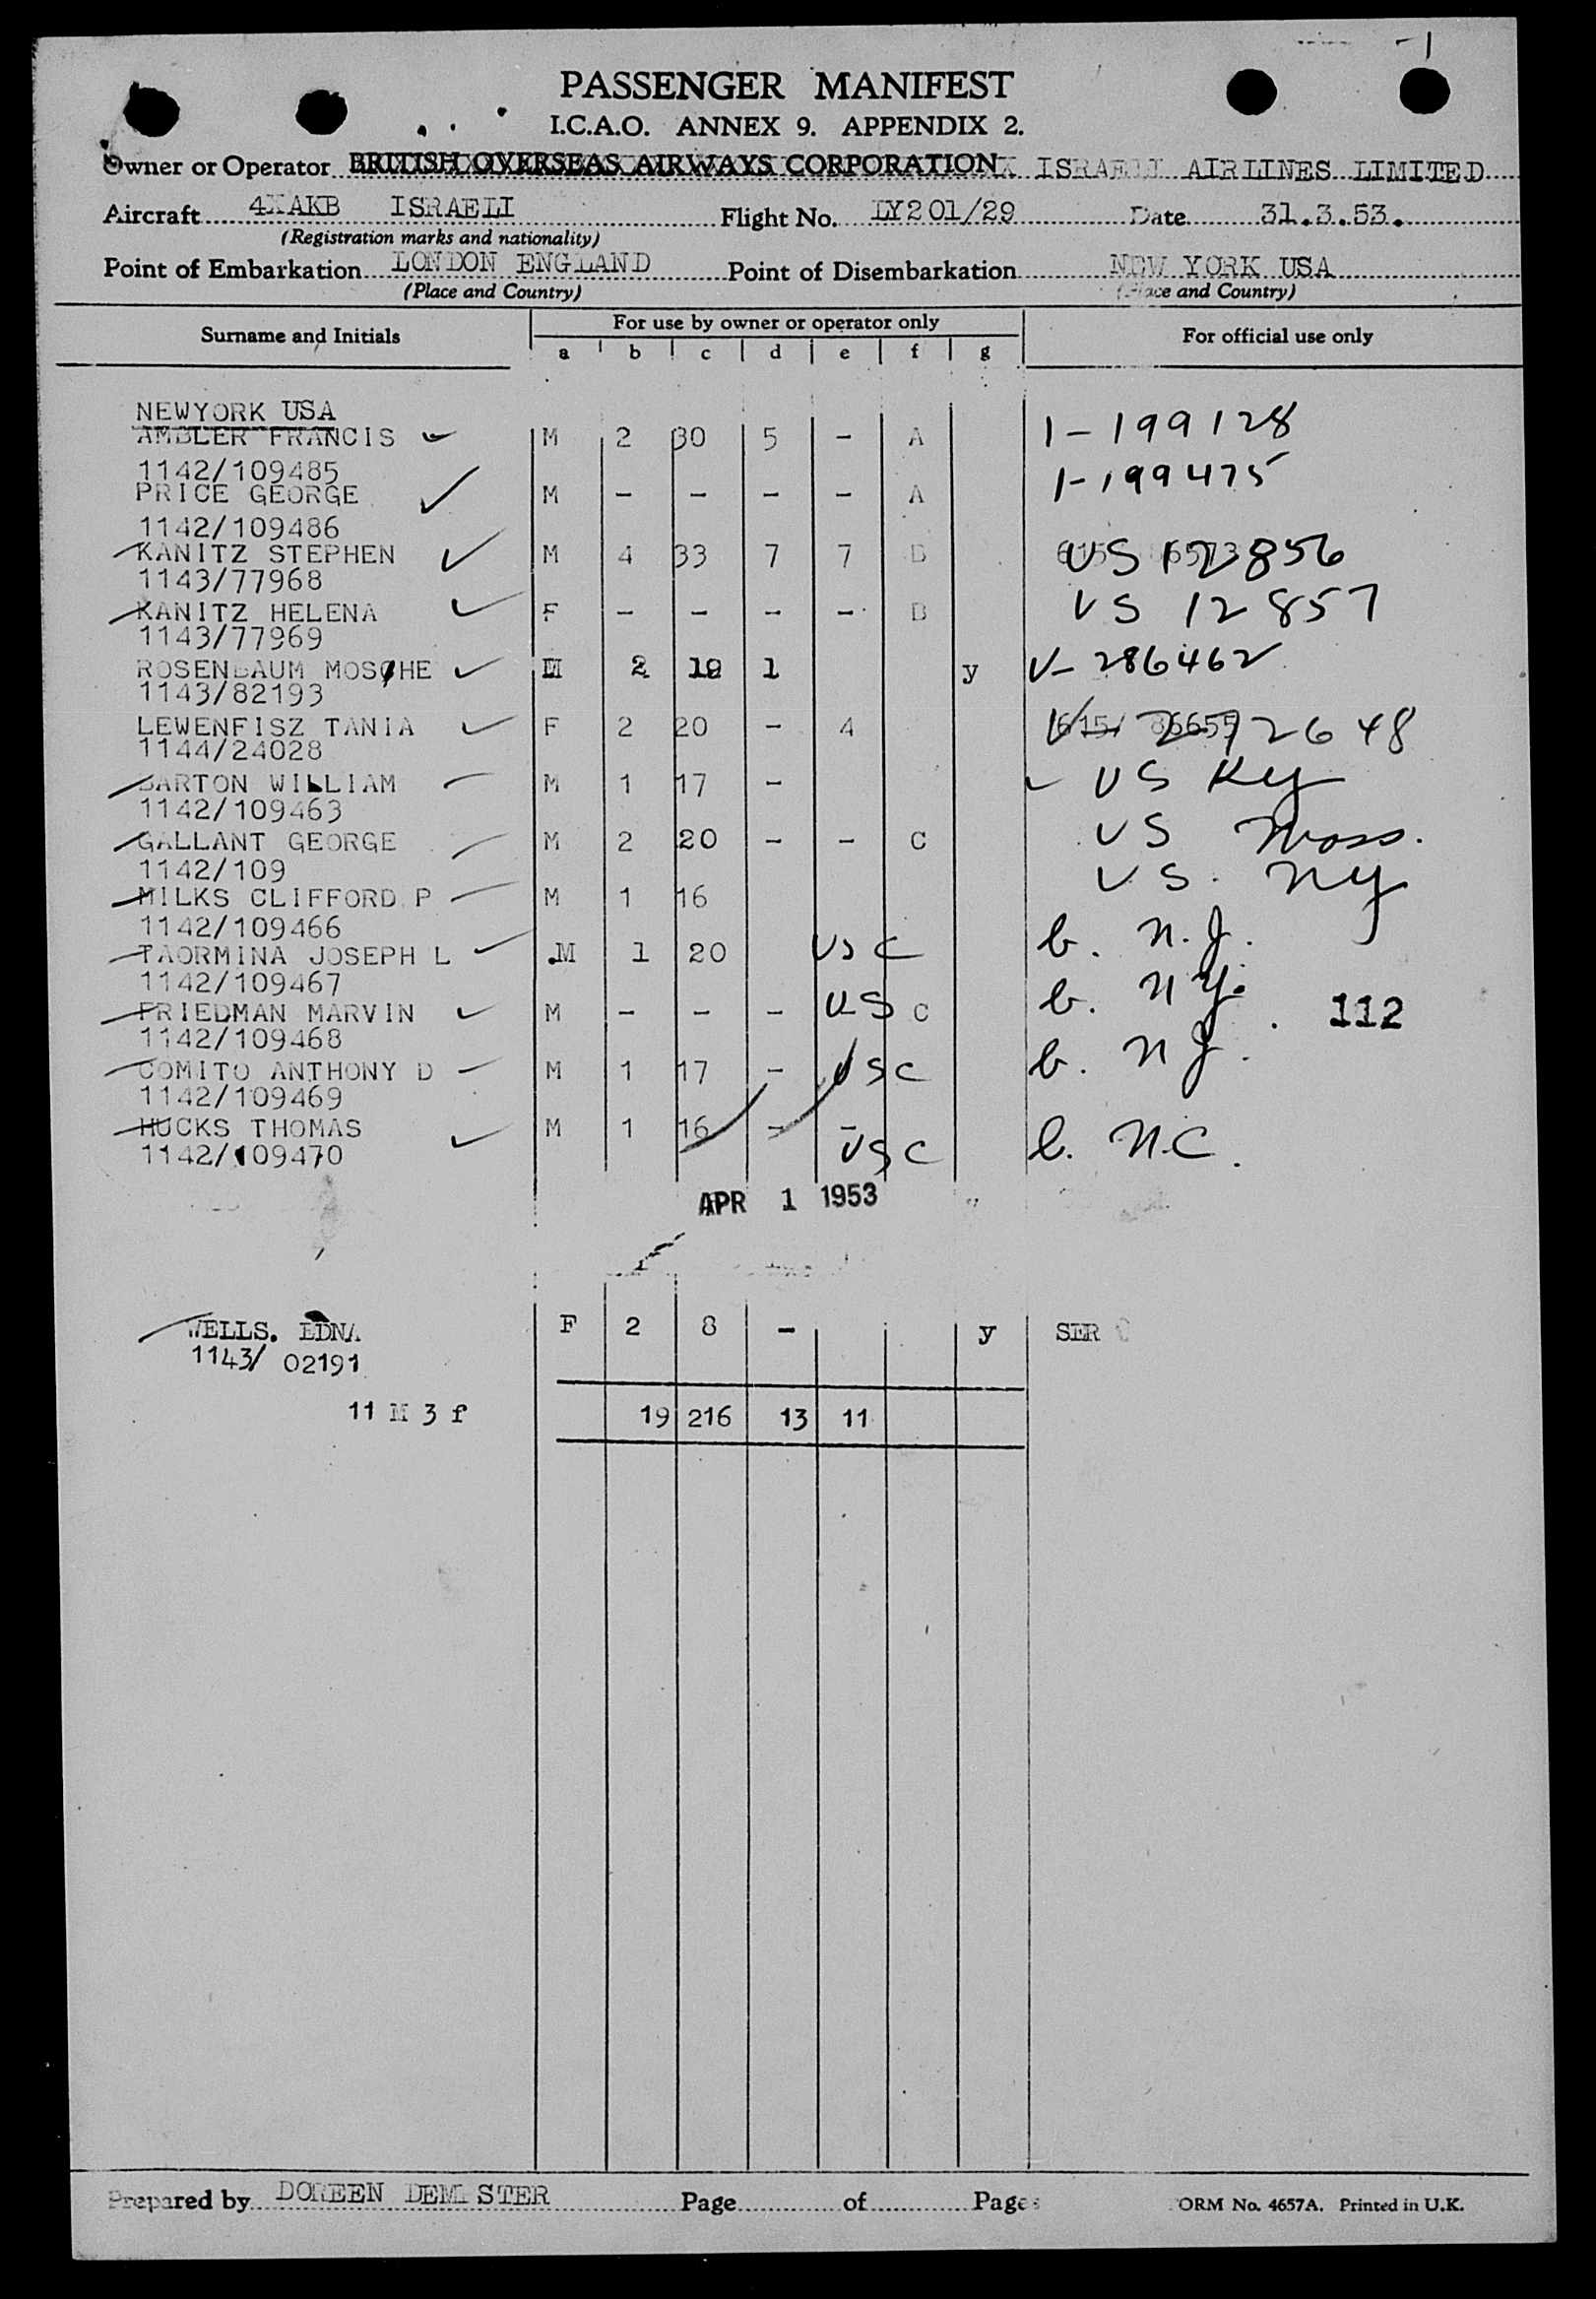 PASSENGER MANIFEST
I.C.A.O. ANNEX 9. APPENDIX 2.
Owner or Operator BRITISH OVERSEAS AIRWAYS CORPORATION ISRAELI AIRLINES LIMITED
Aircraft 4XAKB ISRAELI Flight No. LY201/29 Date 31.3.53.
(Registration marks and nationality)
Point of Embarkation LONDON ENGLAND Point of Disembarkation NEW YORK USA
(Place and Country) (Place and Country)
Surname and Initials For use by owner or operator only For official use only
a b c d e f g
NEWYORK USA
AMBLER FRANCIS M 2 30 5 - A 1-199128
1142/109485
PRICE GEORGE M - - - - A 1-199475
1142/109486
KANITZ STEPHEN M 4 33 7 7 B US 12856
1143/77968
KANITZ HELENA F - - - - B US 12857
1143/77969
ROSENBAUM MOSCHE M 2 19 1 y V-286462
1143/82193
LEWENFISZ TANIA F 2 20 - 4 2648
1144/24028
BARTON WILLIAM M 1 17 - US Ky
1142/109463
GALLANT GEORGE M 2 20 - - C US Mass.
1142/109
MILKS CLIFFORD P M 1 16 U.S. NY
1142/109466
TAORMINA JOSEPH L M 1 20 USC b. N.J.
1142/109467
FRIEDMAN MARVIN M - - - US C b. NY. 112
1142/109468
COMITO ANTHONY D M 1 17 - USC b. NJ.
1142/109469
HUCKS THOMAS M 1 16 - - USC b. N.C.
1142/109470
APR 1 1953
WELLS. EDNA F 2 8 - y SER
1143/ 02191
11 M 3 f 19 216 13 11
Prepared by DOREEN Page of Pages FORM No. 4657A. Printed in U.K.